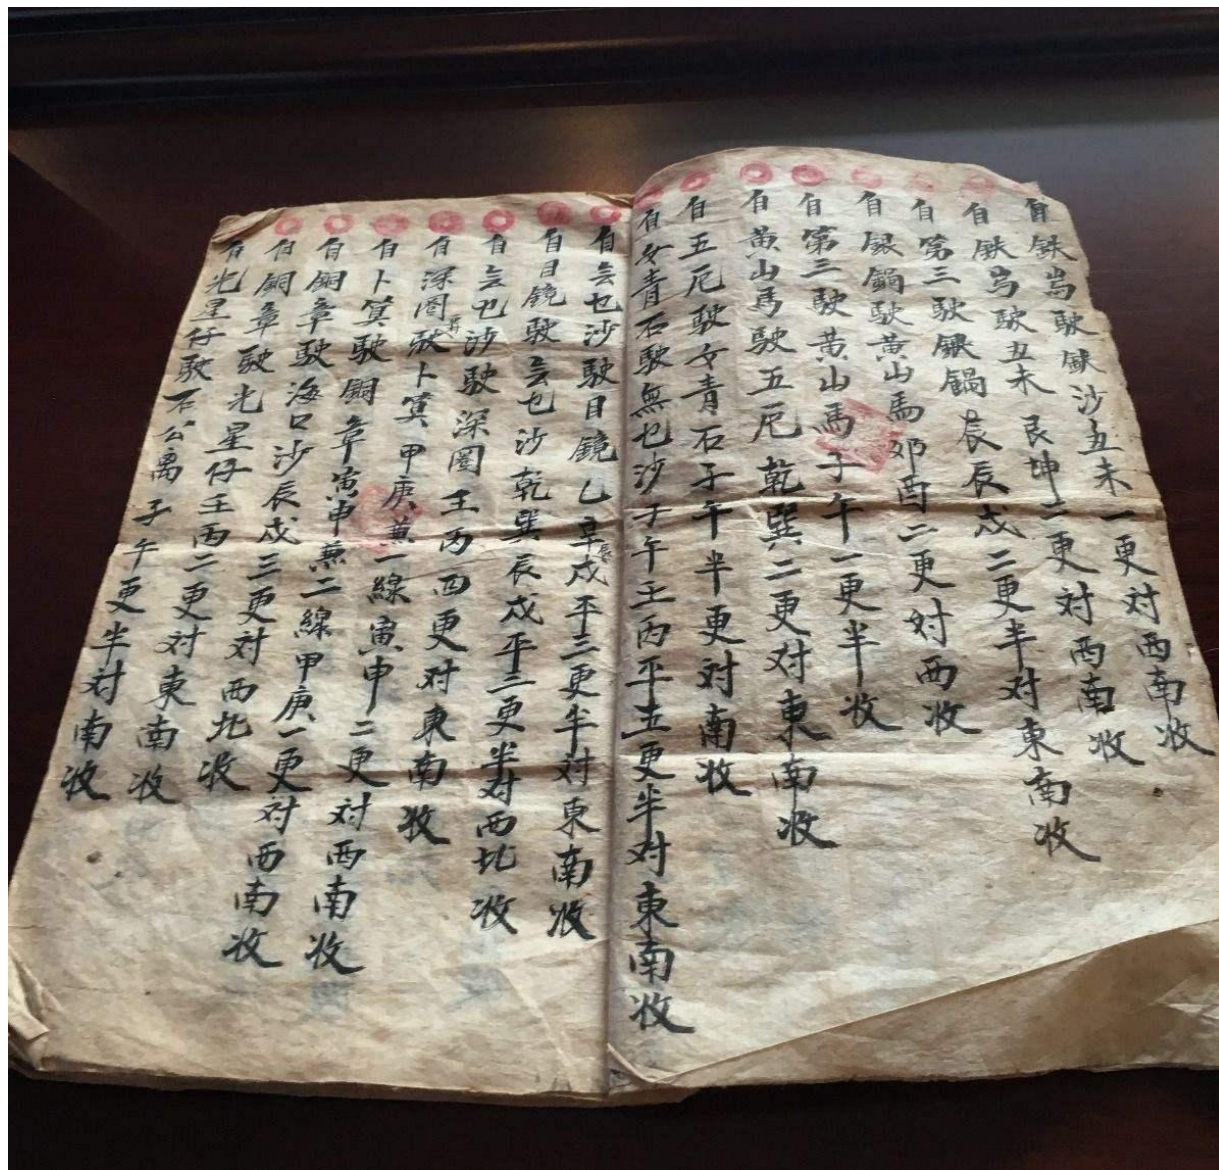 自鉄峙駛銀沙丑未一更对西南收
自鉄峙駛丑未艮坤二更对西南收
自第三駛銀鍋辰辰戍二更半对東南收
自銀鍋駛黄山馬邜酉二更对西收
自第三駛黄山馬子午一更半收
自黄山馬駛五厄乾巽二更对東南收
自五厄駛女青石子午半更对南收
自女青石駛無乜沙子午壬丙平五更半对東南收
自乜沙駛目鏡乙辛辰戍平三更半对東南收
自目鏡駛乜沙乾巽辰戍平二更半对西北收
自乜沙駛深圈壬丙四更对東南收
自深圈駛卜箕甲庚兼一線寅申二更对西南收
自卜箕駛銅章寅申兼二線甲庚一更对西南收
自銅章駛海口沙辰戍三更对西北收
自銅章駛光星仔壬丙二更对東南收
自光星仔駛石公离子午更半对南收